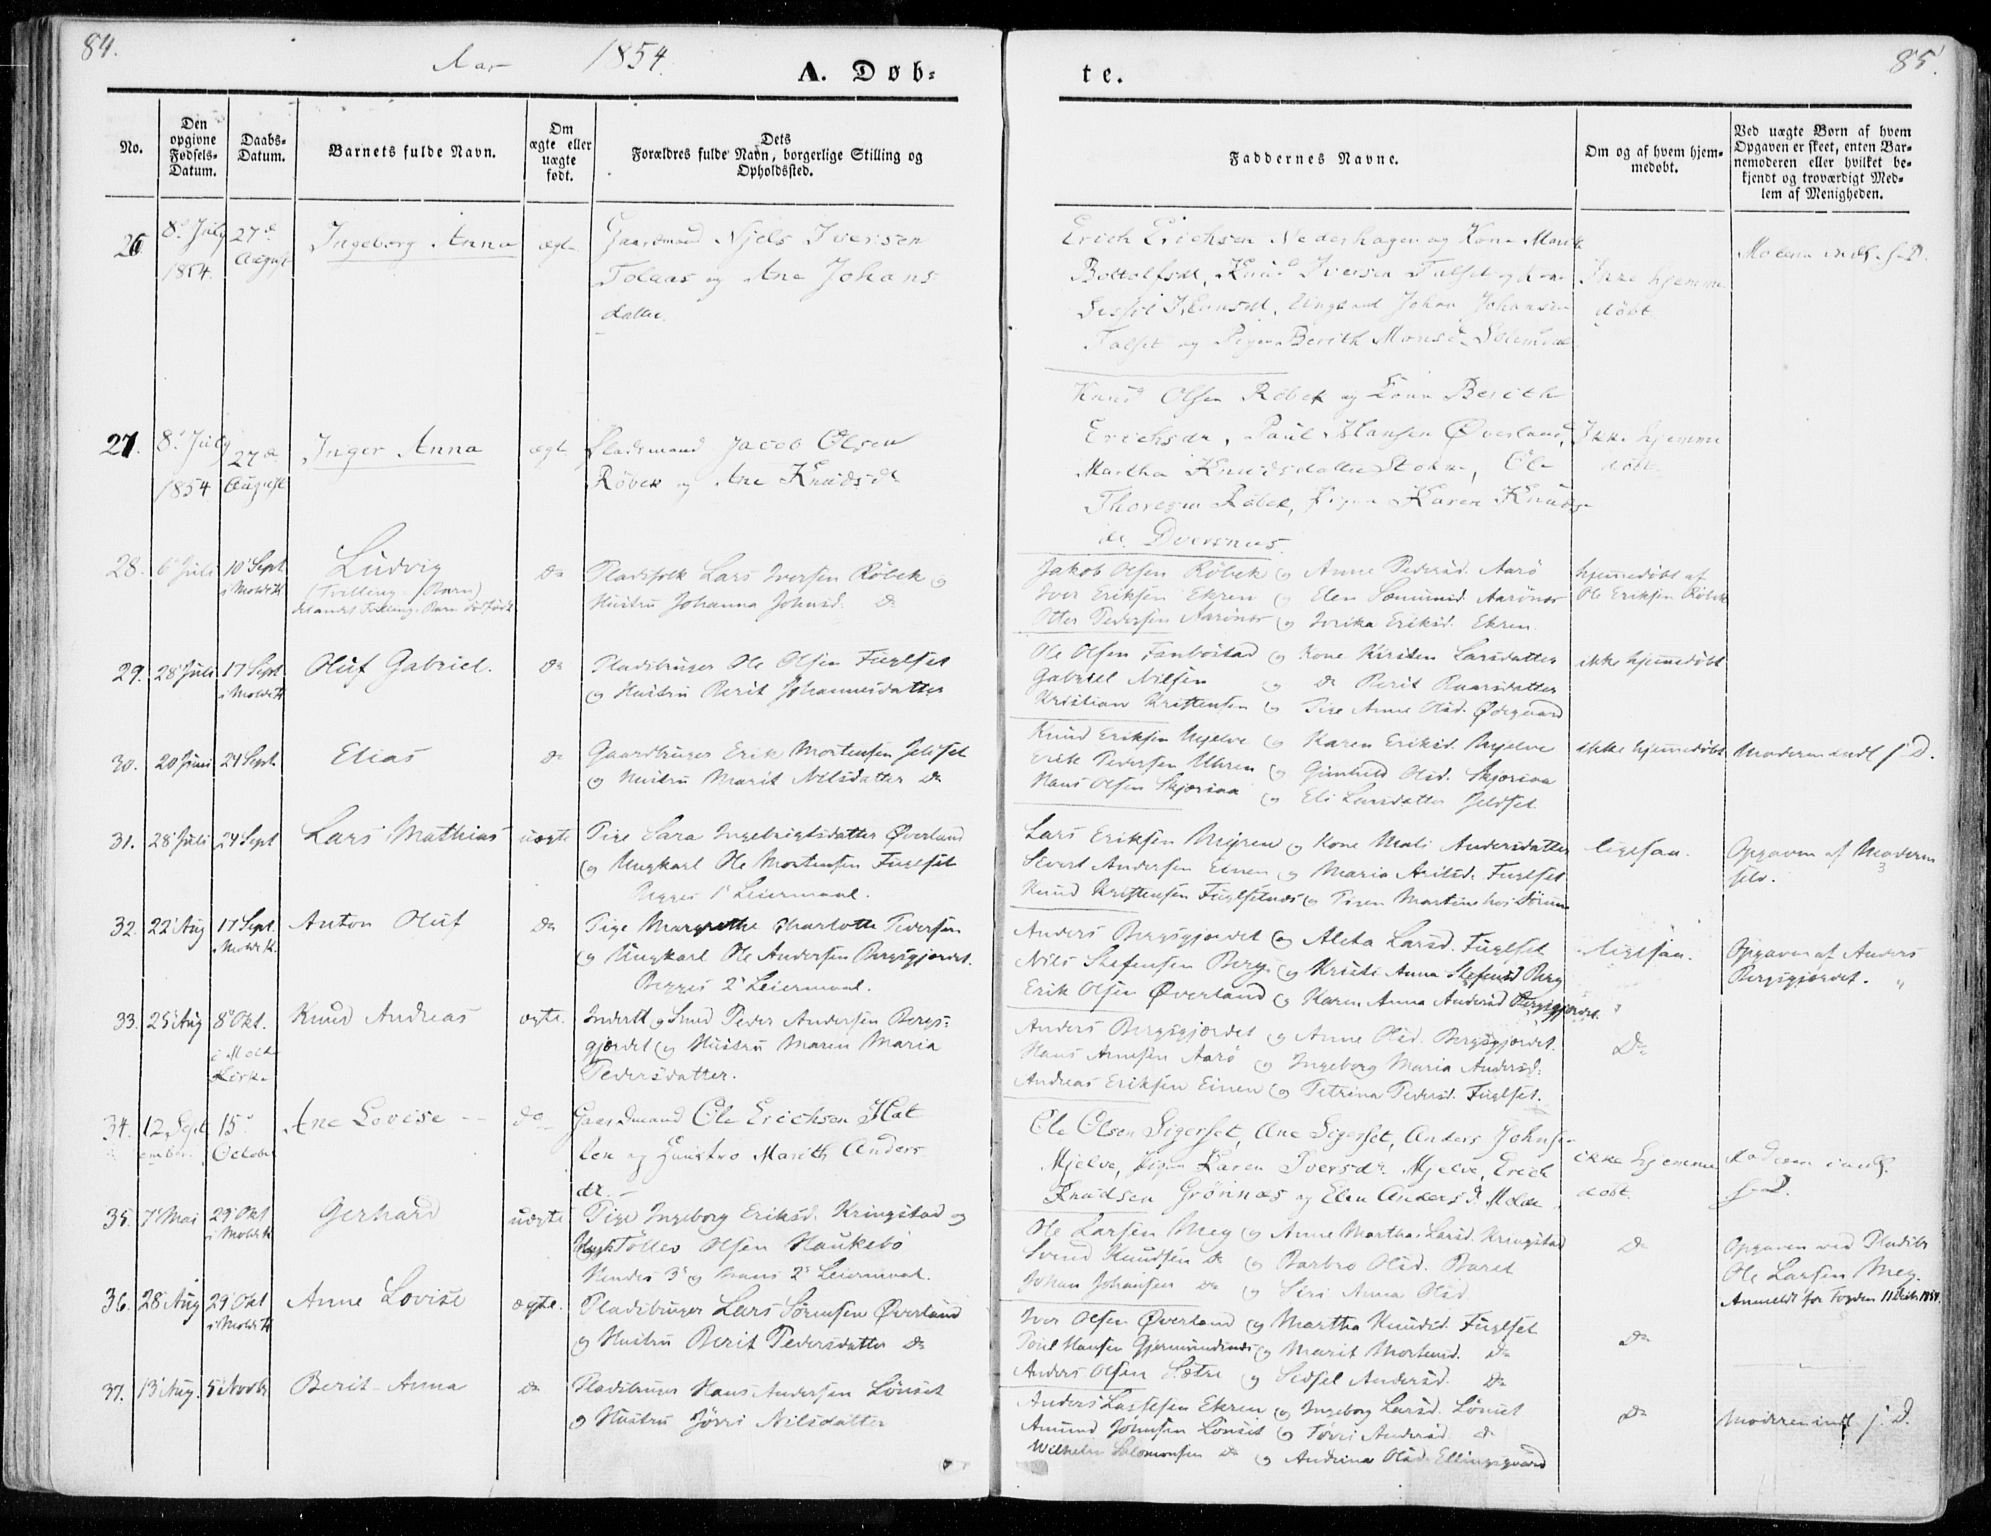 84.
Aar 1854.
A. Døb-
te.
85.
No.
Den opgivne Fødsels-Datum.
Daabs-Datum.
Barnets fulde Navn.
Om ægte eller uægte født.
Dets Forældres fulde Navn, borgerlige Stilling og Opholdssted.
Faddernes Navne.
Om og af hvem hjem-medøbt.
Ved uægte Børn af hvem Opgaven er skeet, enten Bar-nemoderen eller hvilket be-kjendt og troværdigt Med-lem af Menigheden.
26 8de July 1854. 27de August Ingeborg Anna ægte
Gaardmand Njels Iversen
Tolaas og Ane Johans
datter.
Erich Erichsen Nederhagen og Kone Marit
Bottolfsdt, Knud Iversen Falset og Kone
Johan Johansen
Falset og Pigen Berith Monsd.
Ikke hjemme
døbt.
27. 8. July 1854 27de August Inger Anna ægte
Pladsmand Jacob Olsen
Røbek og Ane Knudsdt
Knud Olsen Røbek og Kone Berith
Erichsdr, Paul Hansen Øverland,
Martha Knudsdatter, Ole
Thoresen Røbek, Pigen Karen Knuds-
dr. Dversnes.
Ikke hjemme
døbt
28. 6 Juli 10 Sept i Molde K. Ludvig
(Tvilling-Barn)
det andet Tvilling-Barn dødfødt
Do
Pladsfolk Lars Iversen Røbek og
Hustru Johanna Johnsd. Do
Jakob Olsen Røbek og Anne Pedersd. Aarø
Iver Eriksen Ekren og Elen Aarønes
Otter Pedersen Aarønes og Eriksd. Ekren.
hjemedøbt af
Ole Eriksen Røbek
29. 28 Juli 17 Sept i Molde K. Oluf Gabriel. Do
Pladsbruger Ole Olsen Fuglset
og Hustru Berit Johannesdatter
Ole Olsen Fanbostad og Kone Kirsten Larsdatter
Gabriel Nilsen og Do Berit
Kristian Kristensen og Pige Anne Olsd. Ødegaard
ikke hjemedøbt
30. 20 Juni 24 Sept. Elias Do
Gaardbruger Erik Mortensen Jelset
og Hustru Marit Nilsdatter Do
Knud Eriksen Mjelve og Karen Eriksd. Mjelve
Erik Pedersen Uhren og Gunhild Olsd. Skjørsaa
Hans Olsen Skjørsaa og Eli Larsdatter Jeldset
ikke hjemedøbt
Moderen indl. f. D.
31. 28 Juli 24 Sept Lars Mathias uægte
Pige Sara Ingebrigtsdatter Øverland
og Ungkarl Ole Mortensen Fuglset
Begges 1ste Leiermaal.
Lars Eriksen og Kone Mali Andersdatter
Sivert Andersen Einen og Maria Fuglset
Knud Kristensen Fuglsetnes og Pigen Martine
ligesaa.
Opgaven af Moderen
selv.
32. 22 Aug 17 Sept. i Molde K. Anton Oluf Do
Pige Margrethe Charlotte Pedersen
og Ungkarl Ole Andersen Bergsgjerdet.
Begges 2de Leiermaal.
Anders Bergsgjerdet og Aleta Larsd. Fuglset
Nils Stefensen Berg og Kristi Anna Stefensd Berg
Erik Olsen Øverland og Karen Anna Andersd Bergsgjerdet.
ligesaa.
Opgaven af Anders
Bergsgjerdet.
33. 25 Aug 8 Okt. i Molde Kirke Knud Andreas ægte.
Peder Andersen Bergs-
gjerdet og Hustru Maren Maria
Pedersdatter.
Anders Bergsgjerdet og Anne Olsd. Bergsgjerdet.
Hans Arnesen Aarø og Ingeborg Maria Andersd.
Andreas Eriksen Einen og Petrina Pedersd. Fuglset.
Do
34. 12 September 15 October Ane Lovise do
Gaardmand Ole Erichsen Hat
len og Hunstro Marith Anders
dr.
Ole Olsen Sigerset, Ane Sigerset, Anders Johns-
Mjelve, Pigen Karen Iversdr. Mjelve, Erich
Knudsen Grønnæs og Elen Andersd. Molde.
ikke hjemme
døbt.
Moderen indl.
f. D.
35. 7 Mai 29 Okt i Molde K Gerhard uægte
Pige Ingeborg Eriksd. Kringstad og
Ungk Tollev Olsen Haukebø
Hendes 3de og hans 2de Leiermaal.
Ole Larsen Meg og Anne Martha Larsd. Kringstad
Svend Knudsen Do og Barbro Olsd.
Johan Johansen Do og Siri Anna Olsd
Do
Opgaven ved Pladsbr
Ole Larsen Meg.
Anmeldt for Fogden 11 1854.
36. 28 Aug 29 Okt i Molde K Anne Lovise ægte.
Pladsbruger Lars Sørensen Øverland
og Hustru Berit Pedersdatter Do
Iver Olsen Øverland og Martha Knudsd. Fuglset
Poul Hansen Gjermundnes og Marit Mortensd. Do
Anders Olsen Sætre og Sidsel Andersd. Do
Do
37. 13 Aug. 5 Novbr Berit Anna Do
Pladsbruger Hans Andersen Lønset
og Hustru Jøvri Nilsdatter
Anders Lassesen Ekren og Ingeborg Larsd. Lønset
Amund Johnsen Lønset og Andersd. Do
Wilhelm Salomonsen Do og Andrina Olsd. Ellingsgaard
Do
Moderen indl. f. D.